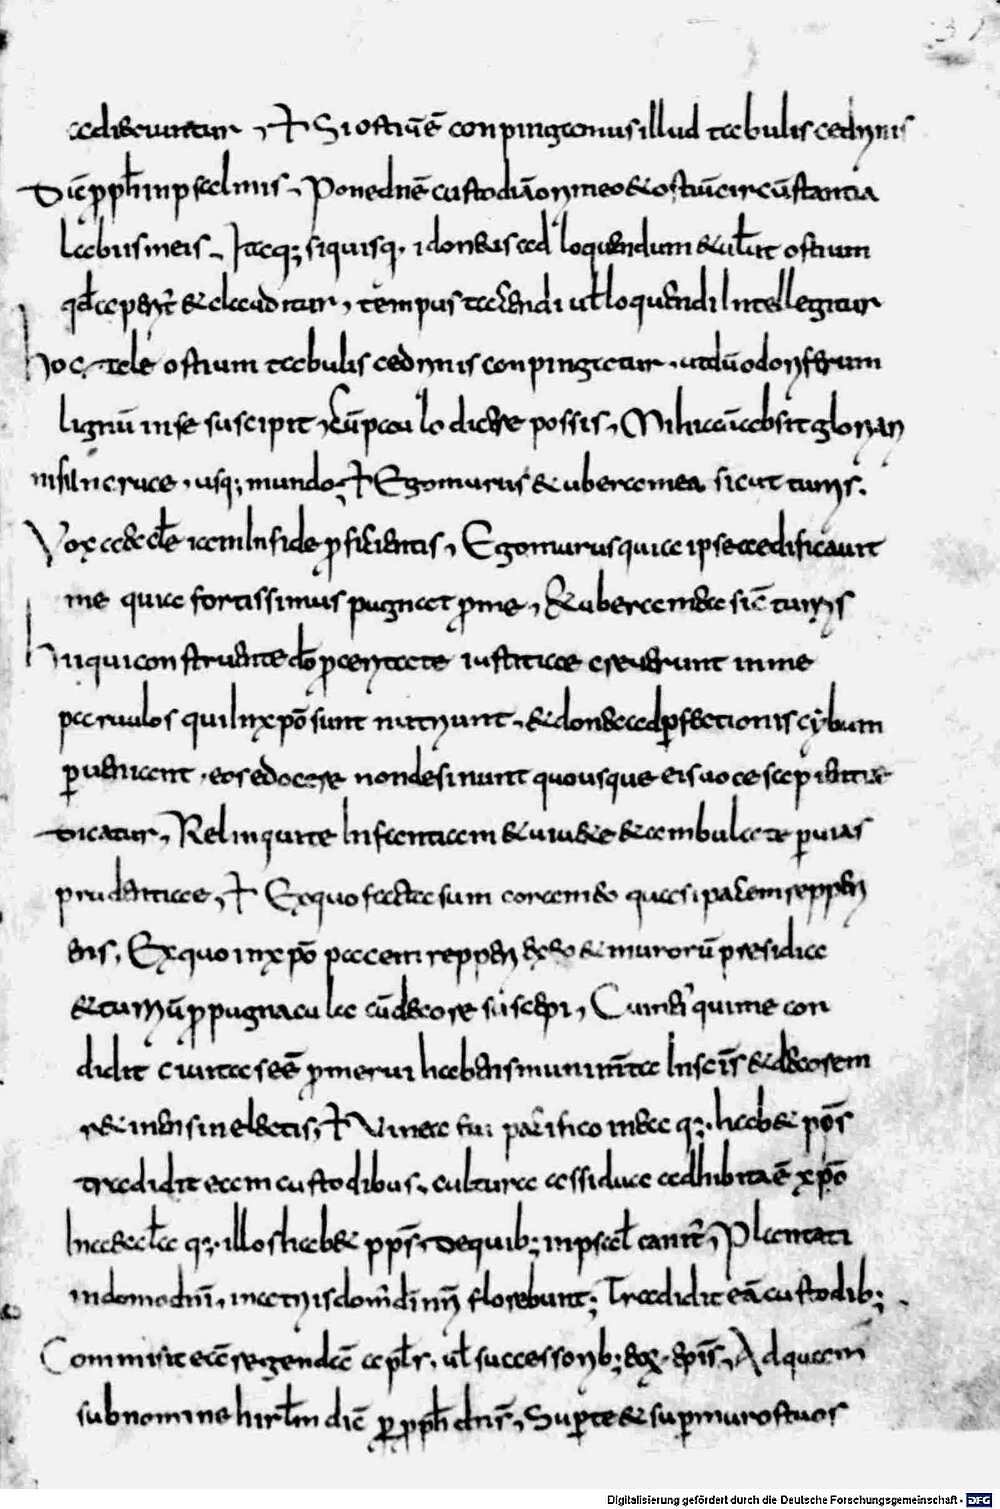 adiscuntur, + Si ostiũ ẽ conpingamus illud tabulis cedrinis
Dicẽ pphã in psalmis. Pone dnẽ custodiã ori meo & ostiũ circũstantia
labiis meis. Itaq; siquisq. idoneus ad loquendum & ut ostium
qd ap & clauditur, tempus tacendi ut loquendi intellegitur
hoc tale ostium tabulis cedrinis conpingatur. ut duodoriferum
lignũ in se suscipit, cũ paulo dicere possis, Mihi aũ absit gloriari
nisi in cruce, usq; mundo, + Ego murus & ubera mea sicut turris.
Vox aecclẽ iam in fide pficientis, Ego murus quia ipse aedificavit
me quia fortissimus pugnat p me, & ubera mea sic turris
hii qui construente do pcaritate iustitiae creverunt in me
parvulos qui in xpõ sunt nutriunt, & donec ad pfectionis cybum
pveniant, eos edocere non desinunt quousque eis voce sapientiae
dicatur, Relinquite infantiam & vivite & ambulate p vias
prudentiae, + Ex quo facta sum coram eo quasi pacem repperi
ens, Ex quo in xpõ pacem repperi & murorũ presidia
& turriũ ppugnacula cũ decore suscepi, Cum qui me con
didit civitas eẽ pmerui habens munimta in scis & decorem
retinens in electis, + Vinea fui pacifico in ea q; hab& pops
tradidit eam custodibus, culturae assiduae adhibita ẽ xpõ
in aeccla q; illos hab& ppls, de quib; in psal canit, Plantati
in domo dni, in atriis dom di nri florebunt; Tradidit eã custodib;
Commisit eã regendã aplis, ul successorib; eoꝝ epis, Ad quam
sub nomine hirlm dic p pph dns, Sup te & sup muros tuos